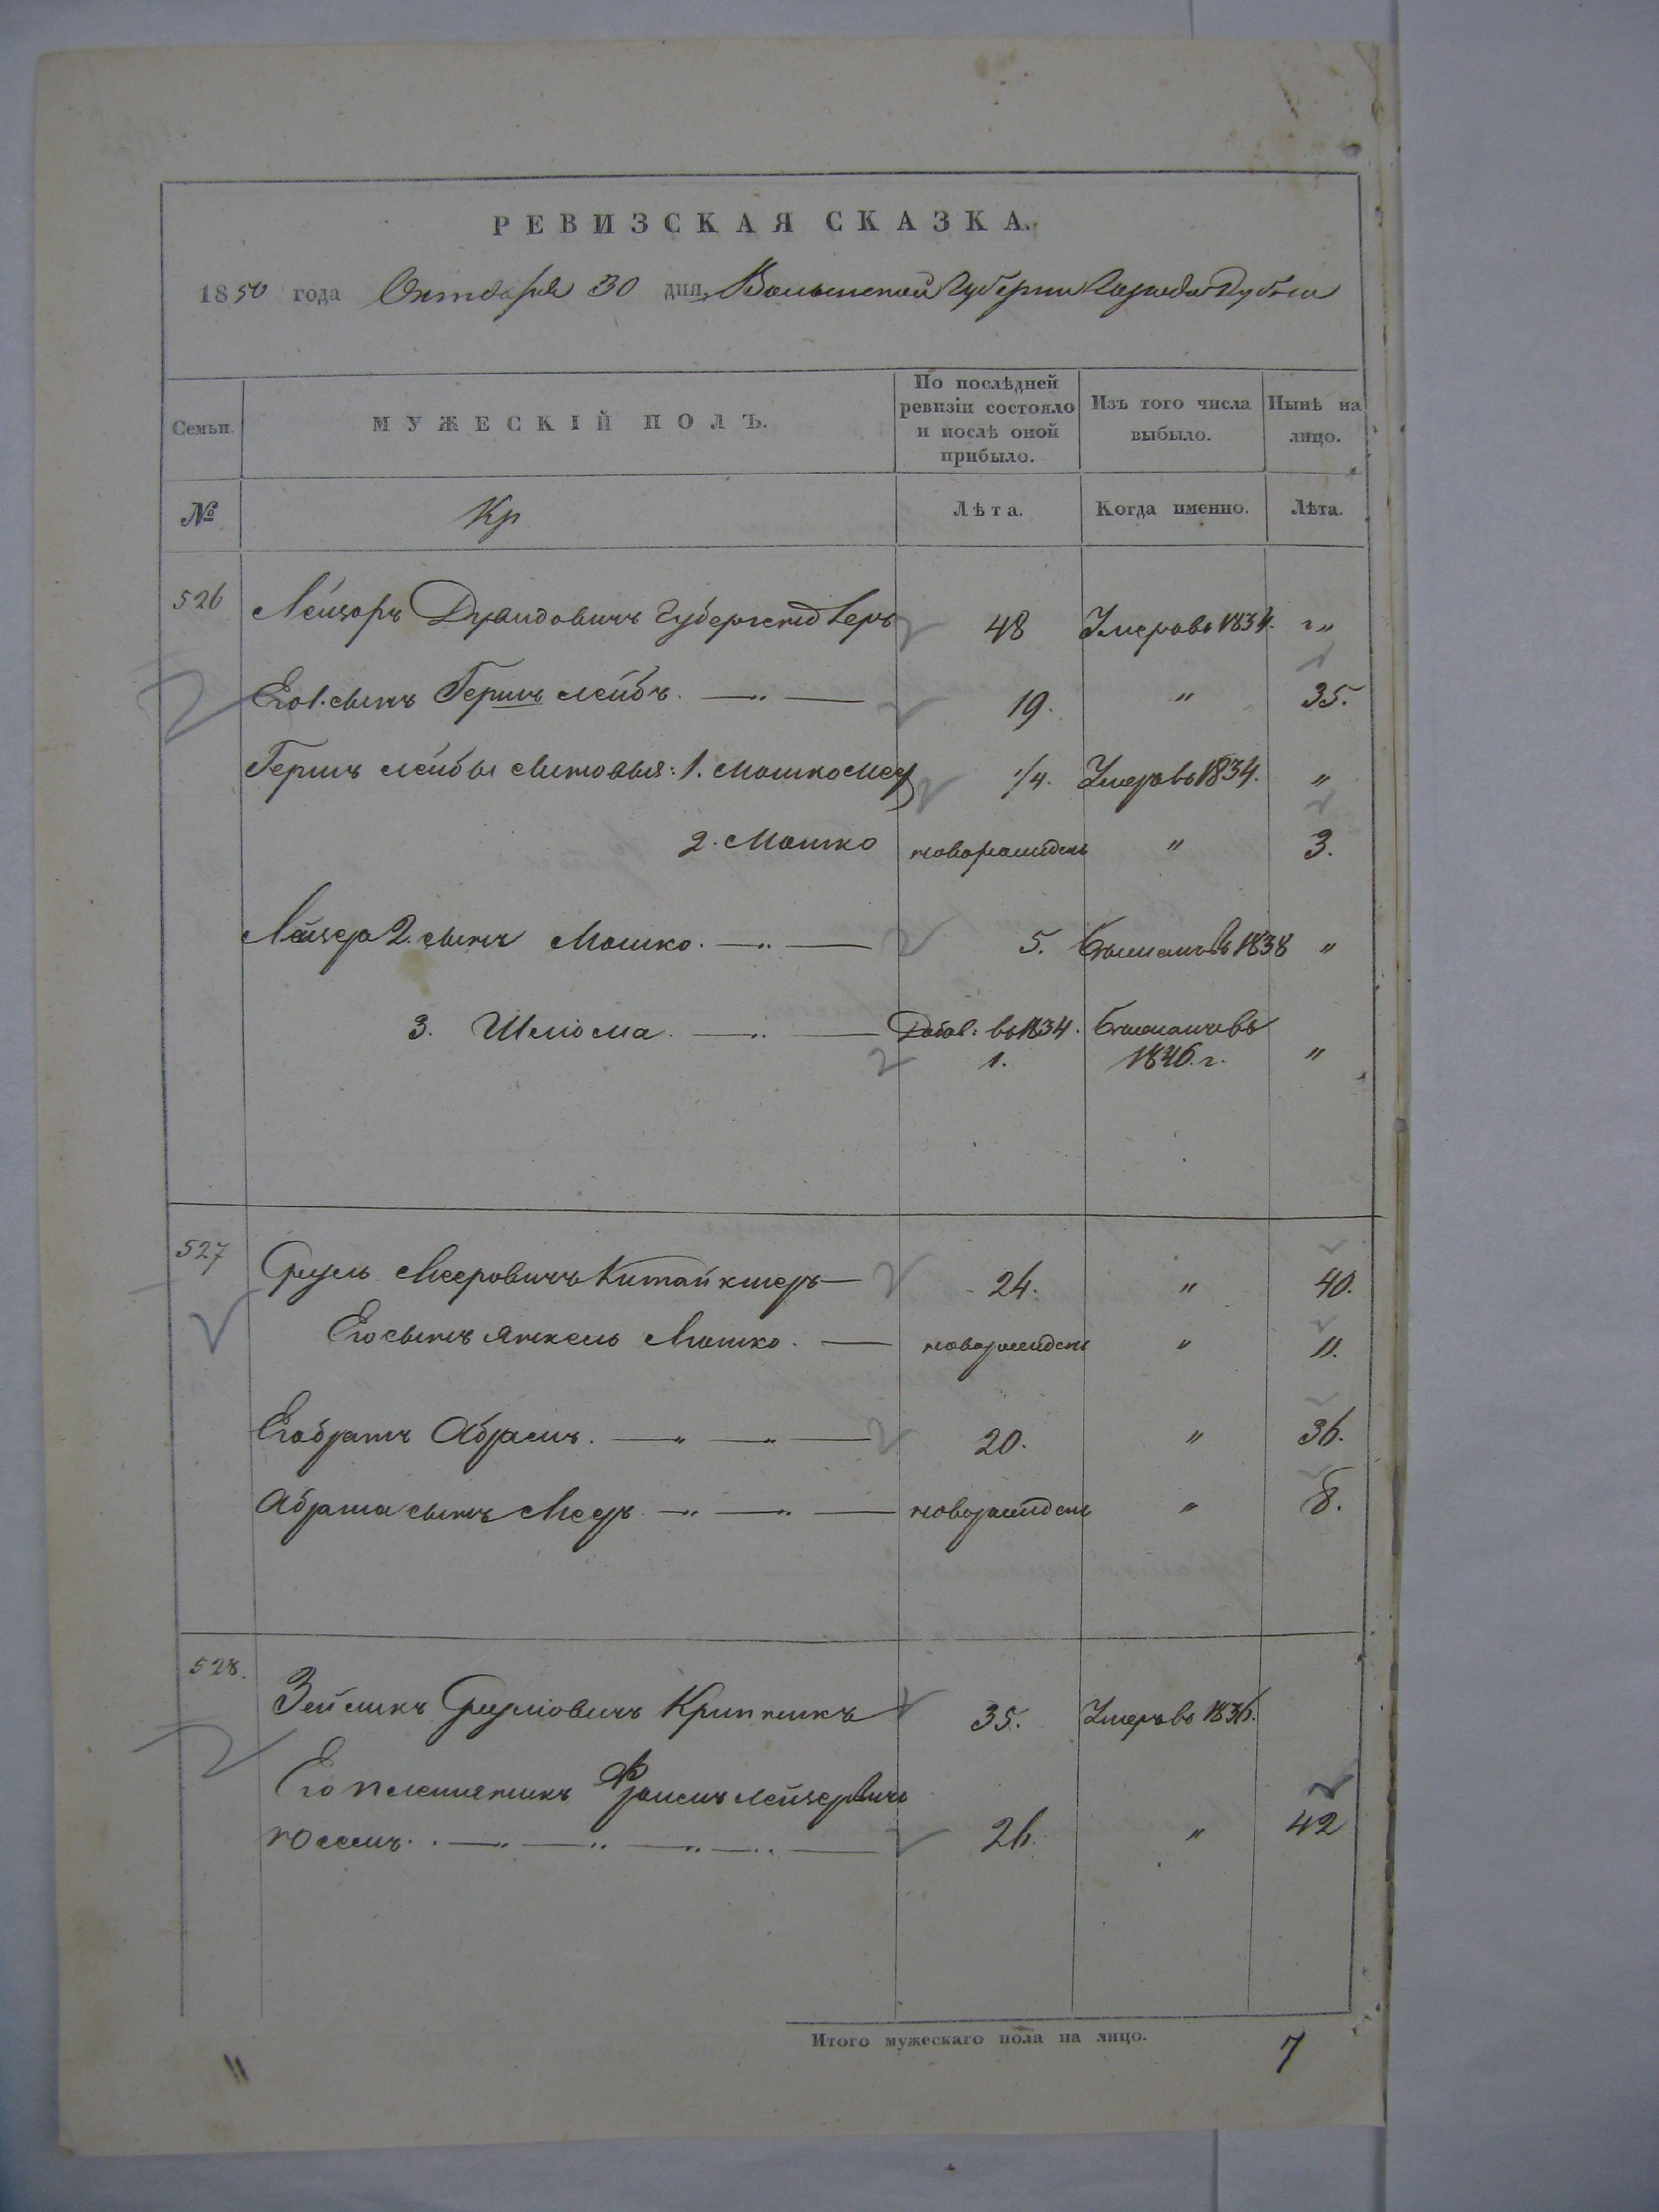 РЕВИЗСКАЯ СКАЗКА.
1850 года Октября 30 дня, Волынской Губернии Города Дубна
Семьи.
МУЖЕСКІЙ ПОЛЪ.
По послѣдней ревизіи состояло и послѣ оной прибыло.
Изъ того числа выбыло.
Нынѣ на лицо.
№
Лѣта.
Когда именно.
Лѣта.
526 Лейзоръ Дувидовичъ 48 Умеръ въ 1834. г „
Его 1. сынъ Гершъ Лейбъ. 19. „ 35.
Гершъ Лейбы сыновья: 1. Мошко Меер 1/4. Умеръ въ 1834. „
2. Мошко новорожденъ „ 3.
Лейзера 2. сынъ Мошко. 5. 1838 „
3. Шлиома. Добав: въ 1834. 
1. 1846. г. „
527 Сруль Мееровичъ Китайкшеръ 24. „ 40.
Его сынъ Янкель Мошко. новорожденъ „ 11.
Его братъ Абрамъ. 20. „ 36.
Абрама сынъ Меер новорожденъ „ 8.
528. Зейликъ Срулiовичъ Крипникъ 35. Умеръ въ 1836.
Его племянникъ Фроимъ Лейзеровичъ
26. „ 42
Итого мужескаго пола на лицо. 7